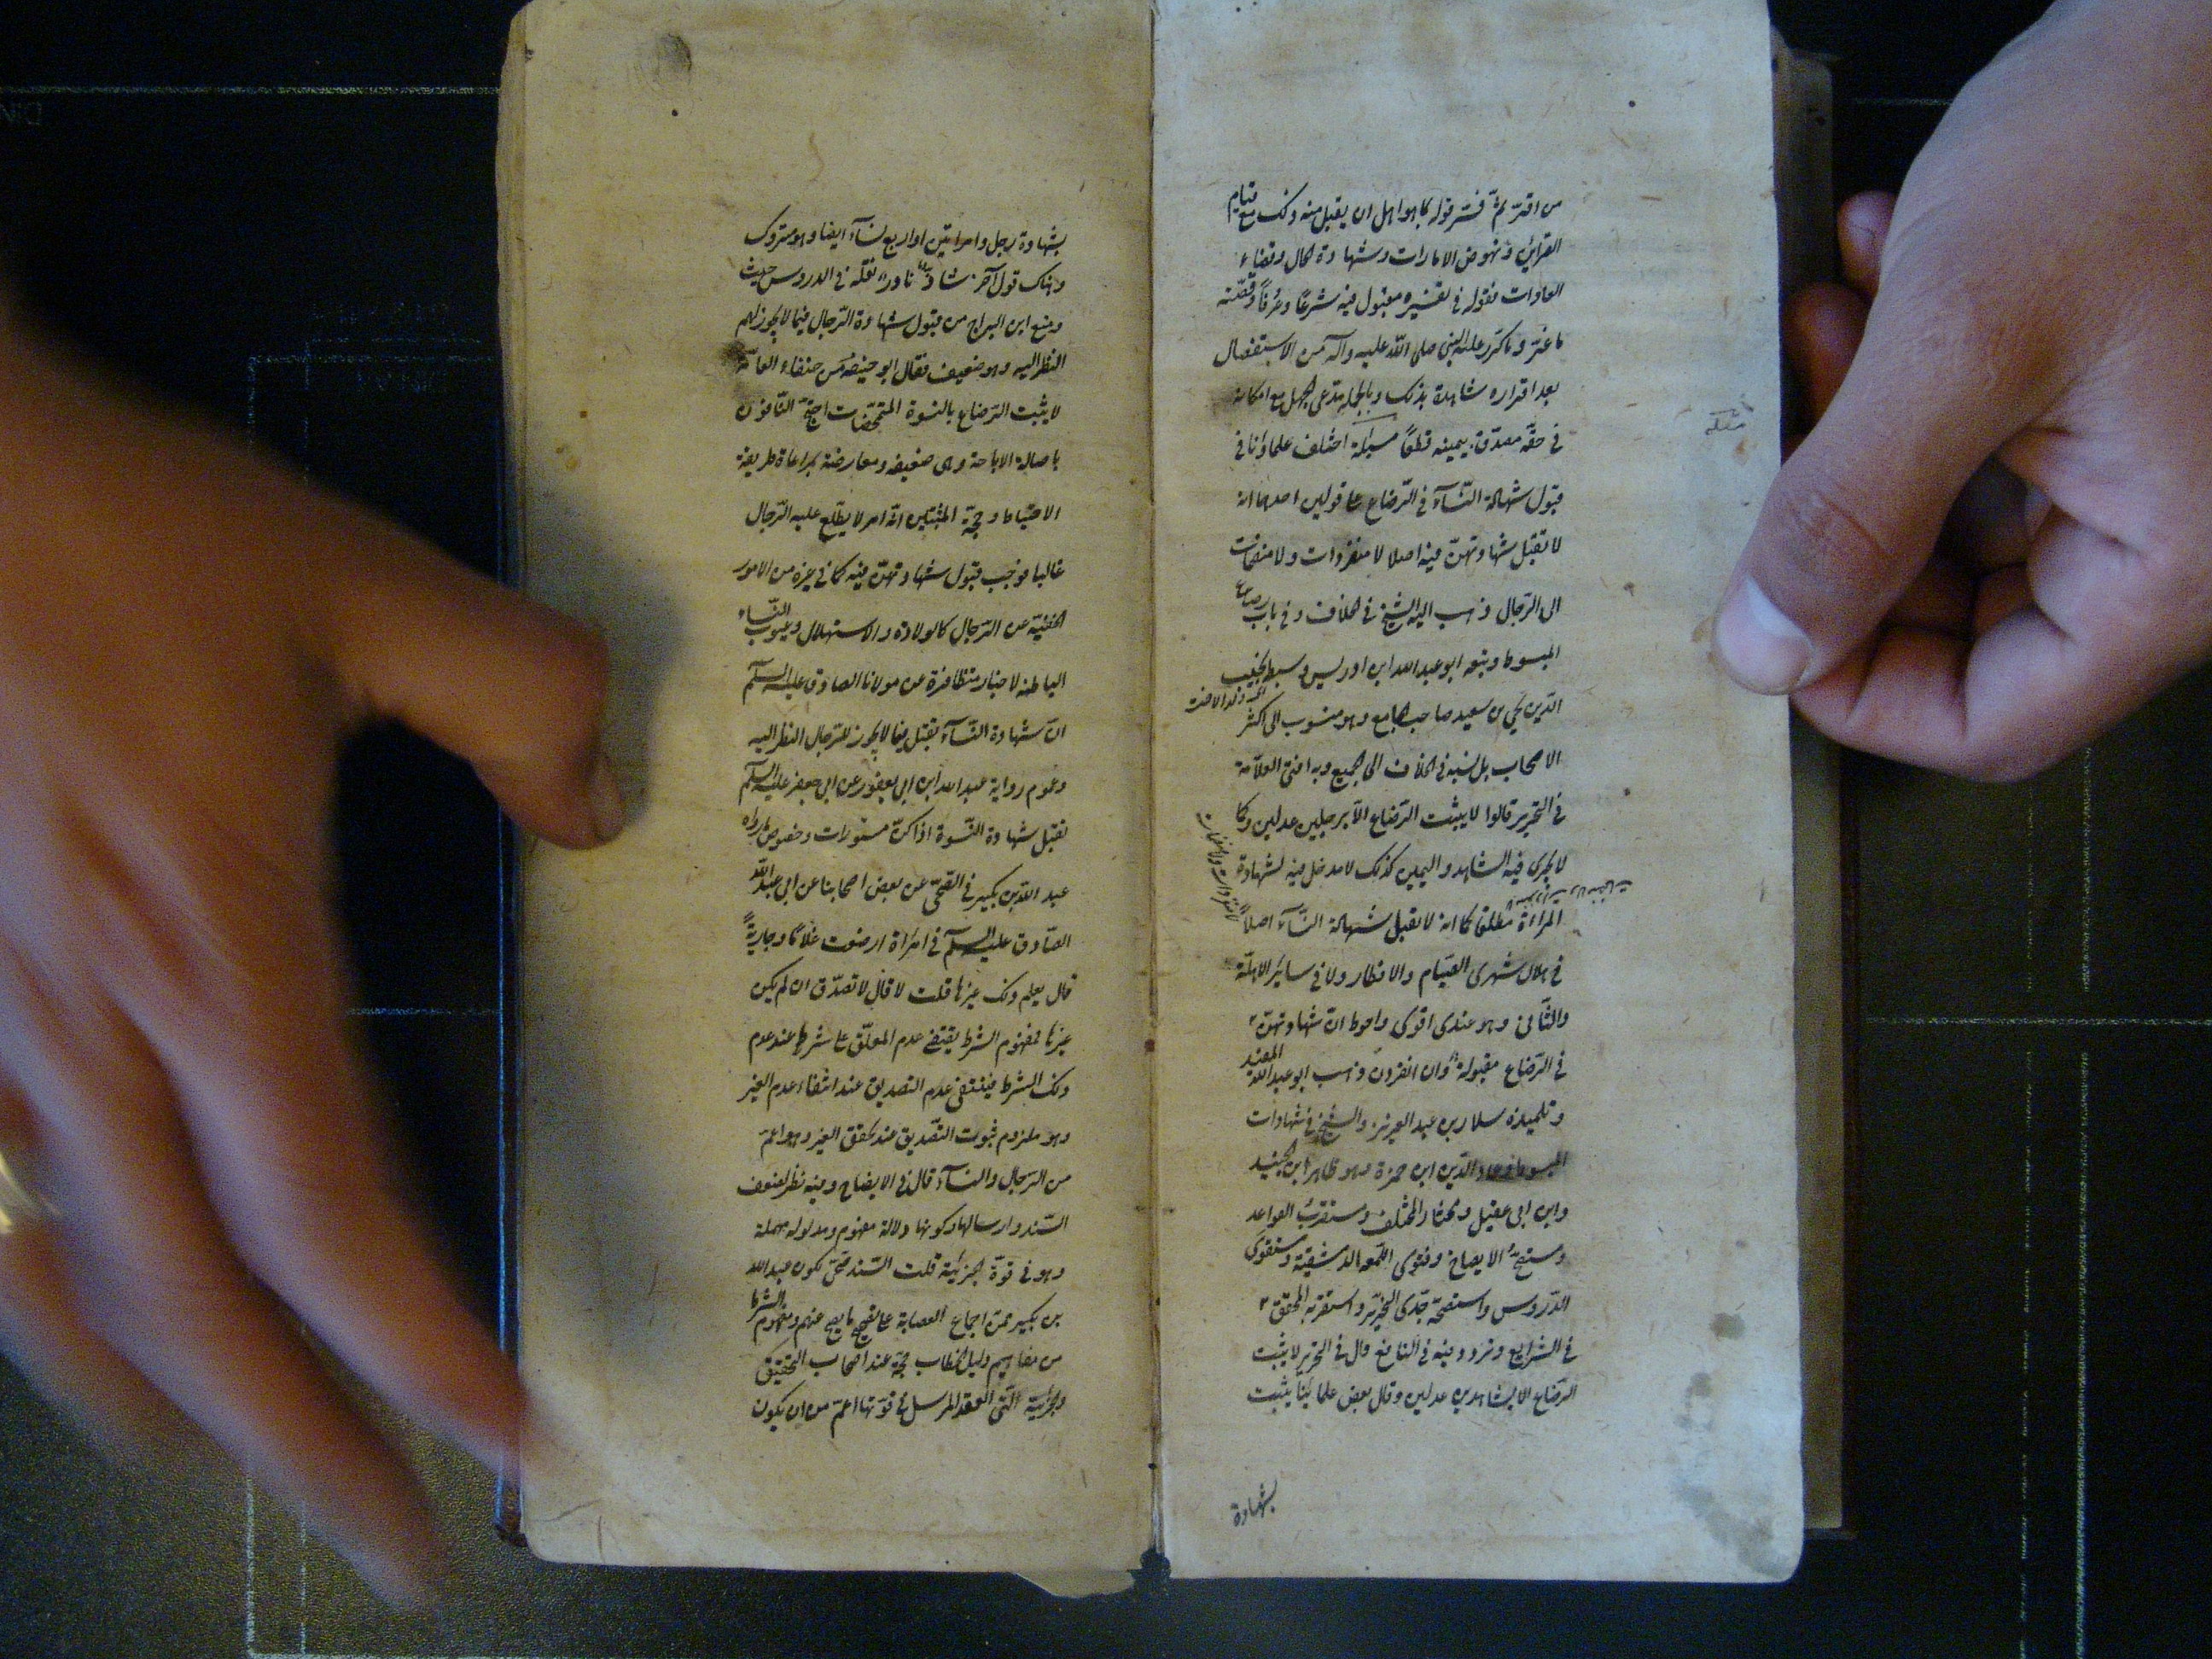 من اقر ثم فسر قوله بما هو اهل ان يقبل منه وذلك مع قيام
القراين ونهوض الامارات وشهادة الحال وقضاء
العادات فقوله في تفسيره مقبول فيه شرعا وعرفا وقصّة
ماعز وما كرر عليه النبي صلى الله عليه وآله من الاستفصال
بعد اقراره شاهدة بذلك وبالجملة مدعى الجهل مع امكانه
في حقه مصدّق بيمينه قطعًا مسئلة اختلف علماؤنا في
قبول شهادة النسآء في الرّضاع على قولين احدهما انه
لا تقبل شهادتهنّ فيه اصلا لا منفردات ولا منضمات
الى الرّجال ذهب اليه الشيخ في الخلاف وفي باب رضاع
المبسوط وتبعه ابو عبد الله ابن ادريس وسبطه نجيب
الدّين يحيى بن سعيد صاحب الجامع وهو منسوب الى اكثر
الاصحاب بل نسبه في الخلاف الى الجميع وبه افتى العلّامة
في التحرير قالوا لا يثبت الرّضاع الّا برجلين عدلين وكما
لا يجرى فيه الشاهد واليمين كذلك لا مدخل فيه لشهادة
المراءة مطلقا كما انه لا تقبل شهادة النسآء اصلًا
لا منفردات ولا منضمات
في هلال شهرى الصّيام والافطار ولا في ساير الاهلّة
والثّانى وهو عندى اقوى واحوط انّ شهادتهنّ
في الرّضاع مقبولة وان انفردن ذهب ابو عبد الله المفيد
وتلميذه سلار بن عبد العزيز والشيخ في شهادات
المبسوط وعماد الدّين ابن حمزة وهو ظاهر ابن الجنيد
وابن ابى عقيل ومختار المختلف ومستقرب القواعد
ومستصحّ الايضاح وفتوى اللّمعه الدمشقيّة ومستقوى
الدّروس واستصحّه جدّى النحرير واستقربه المحقق
في الشرايع وتردد فيه في النافع قال في التحرير لا يثبت
الرّضاع الا بشاهدين عدلين وقال بعض علمائنا يثبت
بشهادة
بشهادة رجل وامراتين او اربع نسآء ايضا وهو متروك
وهناك قول آخر شاذ نادر نقله في الدروس حيث
ومنع ابن البراج من قبول شهادة الرّجال فيما لا يجوز لهم
النظر اليه وهو ضعيف فقال ابو حنيفة من حنفاء العامّة
لا يثبت الرّضاع بالنسوة المتمحّضات احتجّ النّافون
باصالة الاباحة وهى ضعيفه ومعارضة بمراعاة طريقة
الاحتياط وحجة المثبتين انّه امر لا يطّلع عليه الرّجال
غالبا فوجب قبول شهادتهنّ فيه كما في غيره من الامور
الخفيّة عن الرّجال كالولادة والاستهلال وعيوب النّساء
الباطنه لاخبار متظافرة عن مولانا الصادق عليه السلم
انّ شهادة النسآء تقبل فيما لا يجوز للرّجال النظر اليه
وعموم رواية عبد الله ابن ابى يعفور عن ابى جعفر عليه السلم
تقبل شهادة النّسوة اذا كنّ مستورات وخصوص ما رواه
عبد الله بن بكير في الصّحّى عن بعض اصحابنا عن ابى عبد الله
الصّادق عليه السلم في امراة ارضعت غلامًا وجاريةً
قال يعلم ذلك غيرها قلت لا قال لا تصدّق ان لم يكن
غيرها فمفهوم الشرط يقتضى عدم المعلّق على شرط عند عدم
ذلك الشرط فينتفى عدم التصديق عند انتفاء عدم الغير
وهو ملزوم ثبوت التّصديق عند تحقق الغير وهو اعمّ
من الرّجال والنسآء قال في الايضاح وفيه نظر لضعف
السّند وارسالها وكونها دلالة مفهوم ومدلوله مهملة
وهو في قوّة الجزئية قلت السّند صحّى لكون عبد الله
بن بكير ممّن اجماع العصابة على تصحيح ما يصح عنهم ومفهوم الشرط
من مفاهيم دليل الخطاب حجّة عند اصحاب التحقيق
والجزئية الّتى العقد المرسل في قوّتها اعمّ من ان يكون